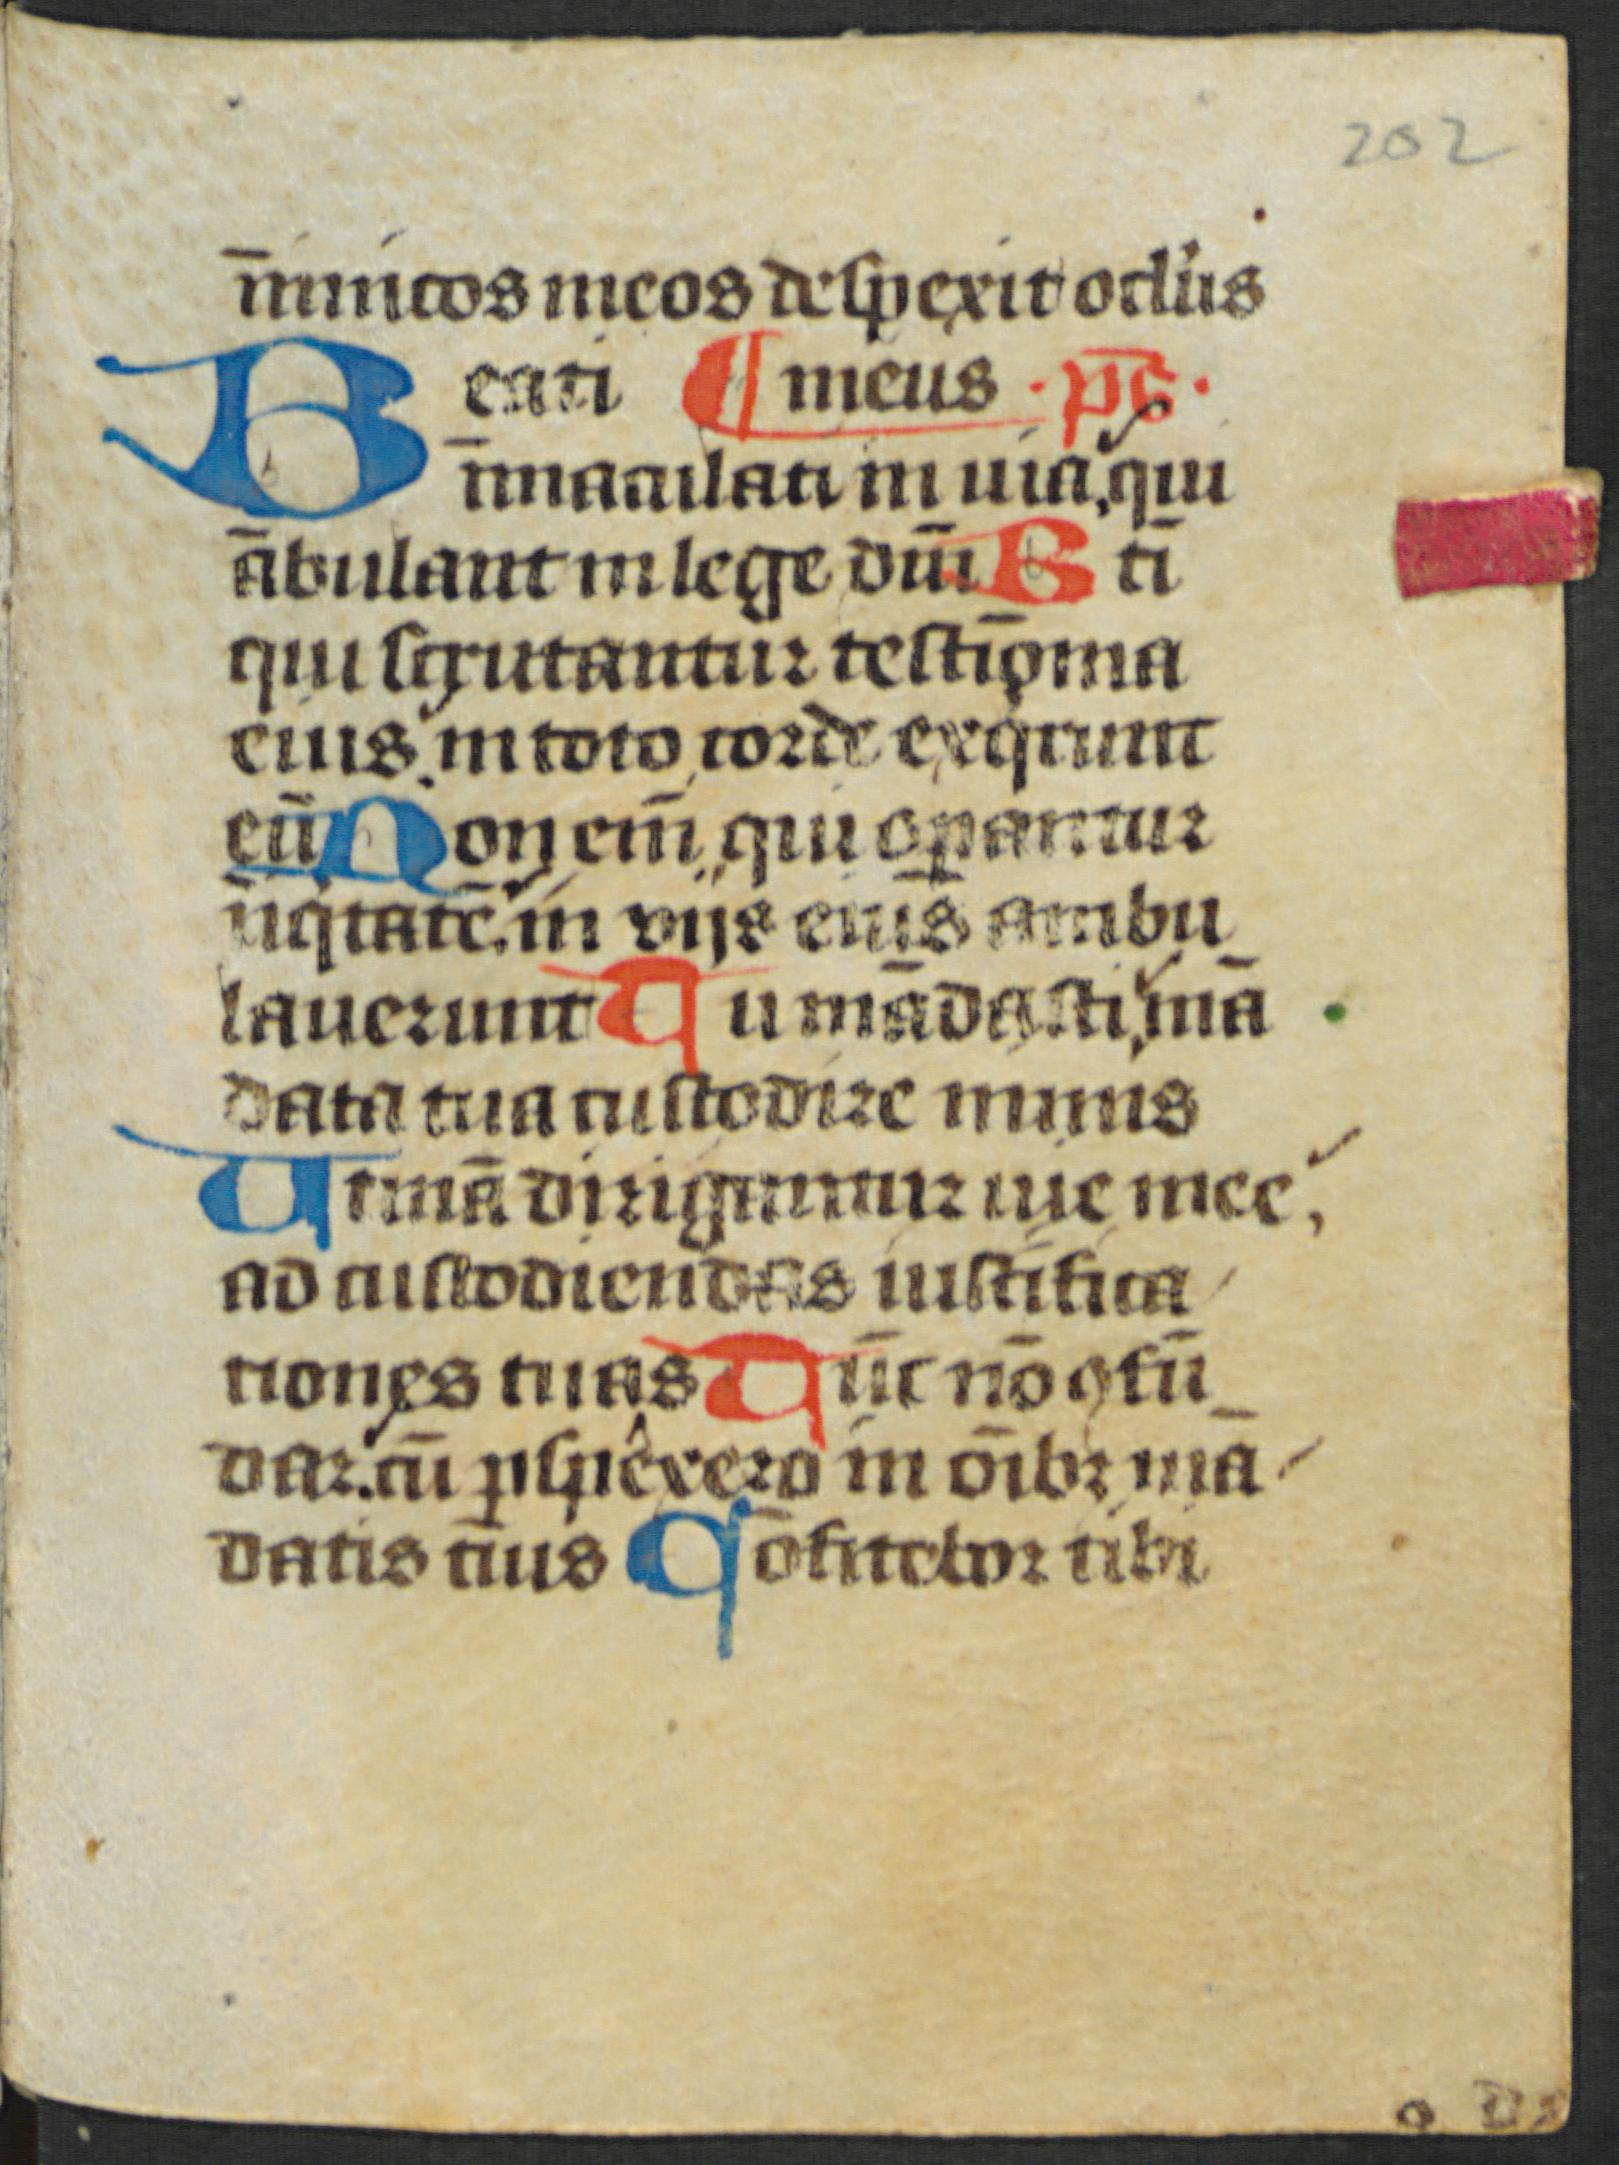 202
īnimicos meos despexit oclūs
Beati ¶ meus · p̄s ·
īmaculati in uia, qui
ābulant in lege dn̄i B ti
qui scrutantur testiōnia
eius, in toto corde exqrunt
eū Non enī, qui opantur
īiqtatē, in vijs eius ambu
lauerunt Tu mādasti, mā
data tua custodire nimis
Utinā dirigantur uie mee,
ad custodiendas iustifica
tiones tuas Tūc nō ꝯfū
dar. cū pspexero in oībꝫ mā
datis tuis Cōfitebor tibi